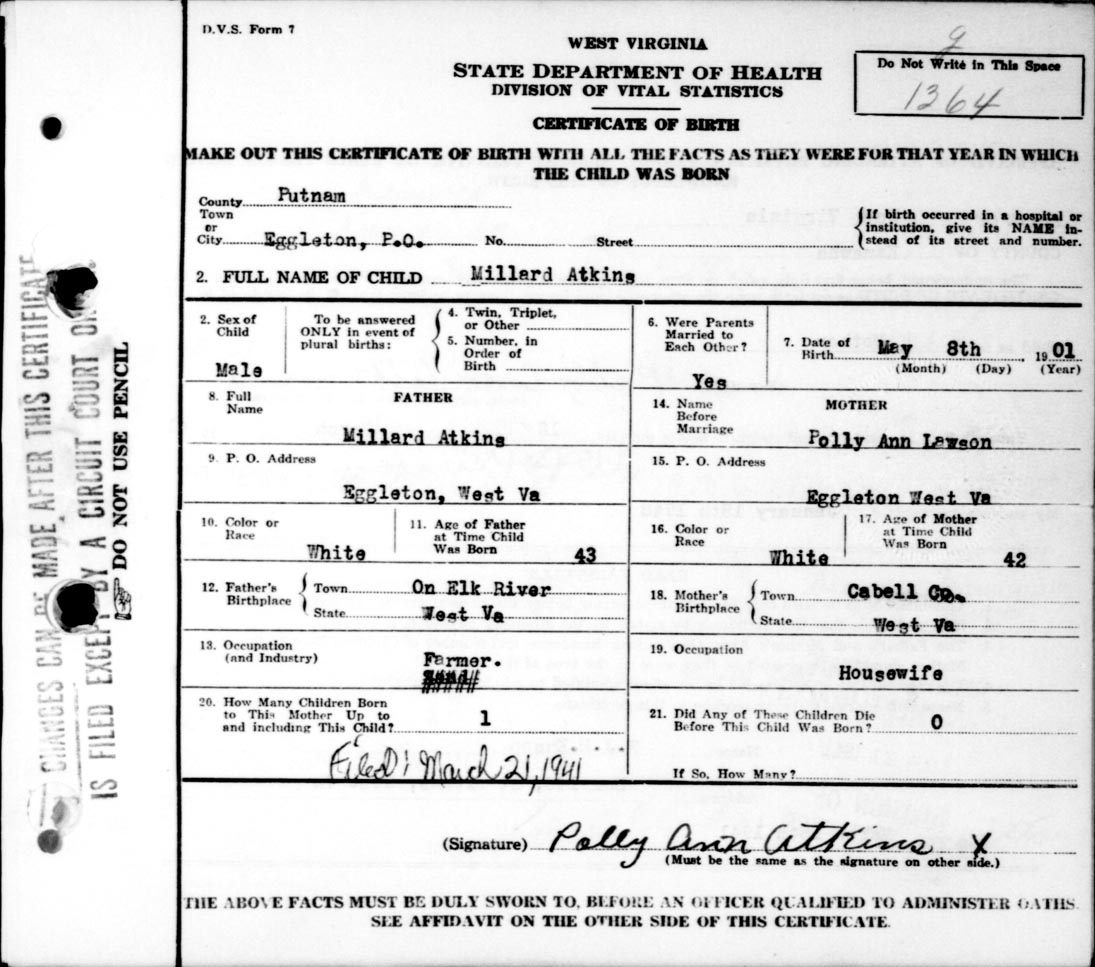 D.V.S. Form 7
WEST VIRGINIA
STATE DEPARTMENT OF HEALTH
DIVISION OF VITAL STATISTICS
CERTIFICATE OF BIRTH
Do Not Write in This Space
1364
MAKE OUT THIS CERTIFICATE OF BIRTH WITH ALL THE FACTS AS THEY WERE FOR THAT YEAR IN WHICH
THE CHILD WAS BORN
County Putnam
Town
or
City Eggleton, P.O. No. Street
If birth occurred in a hospital or
institution, give its NAME in-
stead of its street and number.
2. FULL NAME OF CHILD Millard Atkins
2. Sex of
Child
Male
To be answered
ONLY in event of
plural births:
4. Twin, Triplet,
or Other
5. Number, in
Order of
Birth
6. Were Parents
Married to
Each Other?
Yes
7. Date of
Birth May 8th 1901
(Month) (Day) (Year)
8. Full
Name
FATHER
Millard Atkins
14. Name
Before
Marriage
MOTHER
Polly Ann Lawson
9. P. O. Address
Eggleton, West Va
15. P. O. Address
Eggleton West Va
10. Color or
Race
White
11. Age of Father
at Time Child
Was Born 43
16. Color or
Race
White
17. Age of Mother
at Time Child
Was Born 42
12. Father's
Birthplace
Town On Elk River
State West Va
18. Mother's
Birthplace
Town Cabell Co.
State West Va
13. Occupation
(and Industry)
Farmer.
19. Occupation
Housewife
20. How Many Children Born
to This Mother Up to
and including This Child? 1
21. Did Any of These Children Die
Before This Child Was Born? 0
If So, How Many?
Filed: March 21, 1941
(Signature) Polly Ann Atkins X
(Must be the same as the signature on other side.)
THE ABOVE FACTS MUST BE DULY SWORN TO, BEFORE AN OFFICER QUALIFIED TO ADMINISTER OATHS.
SEE AFFIDAVIT ON THE OTHER SIDE OF THIS CERTIFICATE.
CHANGES CAN BE MADE AFTER THIS CERTIFICATE
IS FILED EXCEPT BY A CIRCUIT COURT
DO NOT USE PENCIL